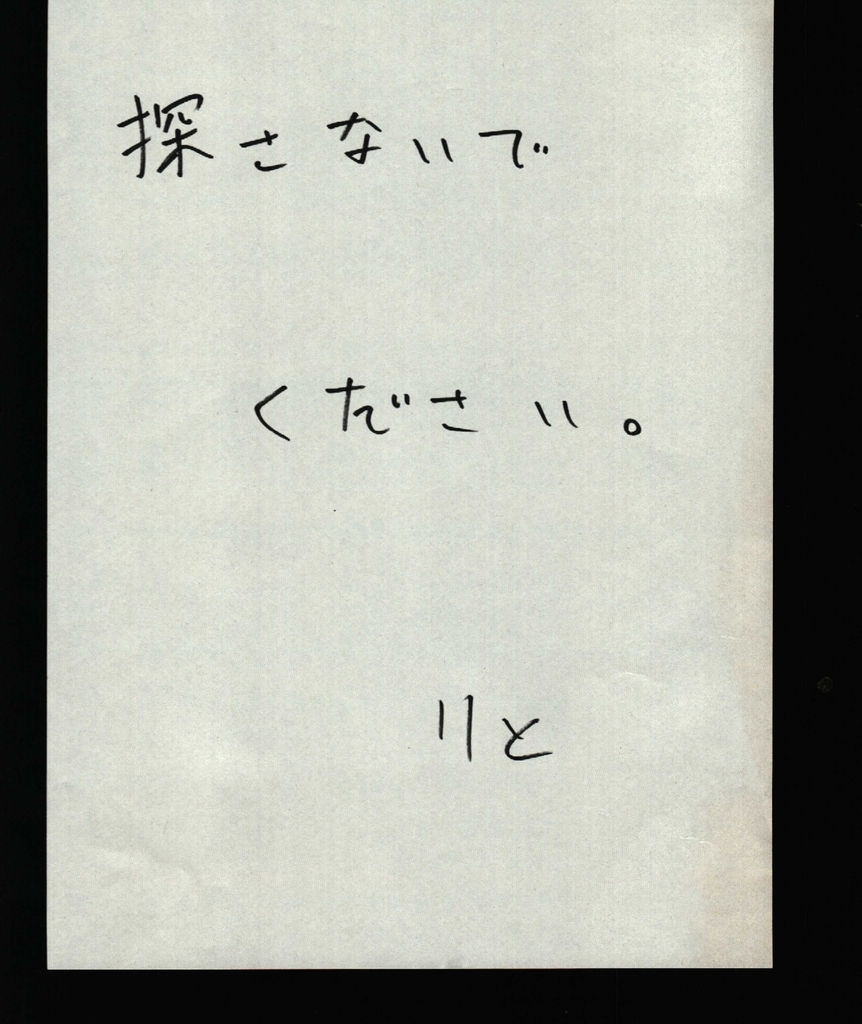 探さないで
ください。
りと